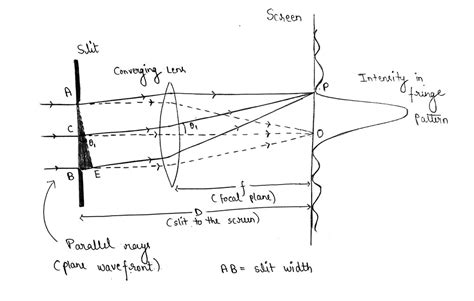 Screen
Slit
Converging Lens
A
P
Intensity in
fringe
pattern
C
θ₁
θ₁
O
B
E
f
(focal plane)
D
(slit to the screen)
Parallel rays
(plane wavefront)
AB = slit width